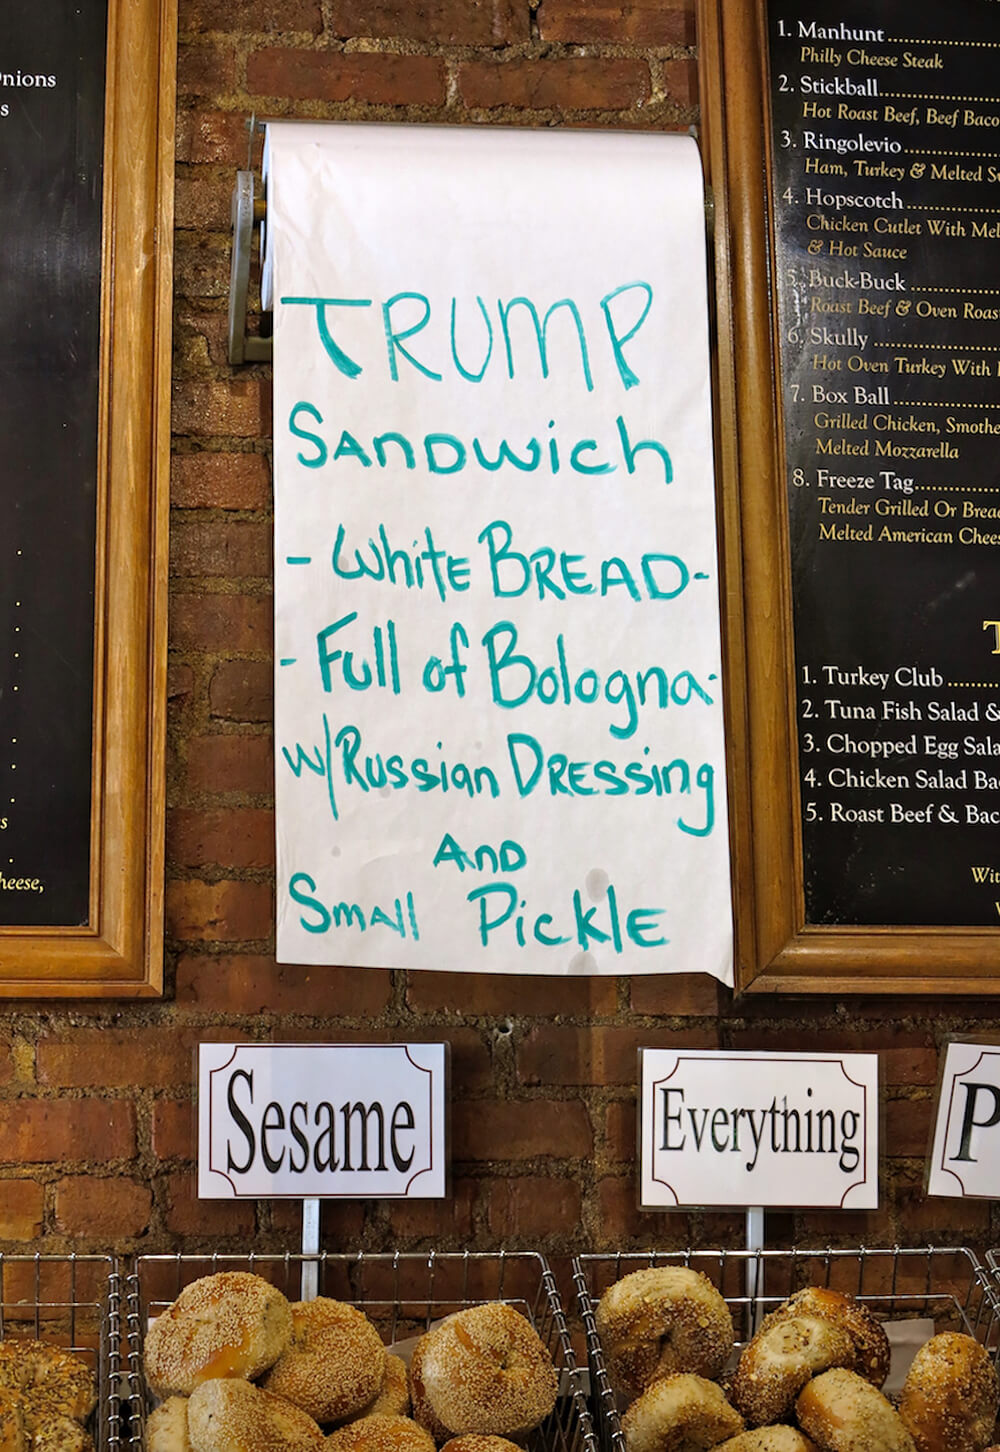 nions
s
s
heese,
TRUMP
SANDWich
- White BREAD-
- Full of Bologna-
w/Russian DRESSing
AND
SmAll Pickle
1. Manhunt
Philly Cheese Steak
2. Stickball
Hot Roast Beef, Beef Baco
3. Ringolevio
Ham, Turkey & Melted Sw
4. Hopscotch
Chicken Cutlet With Mel
& Hot Sauce
5. Buck-Buck
Roast Beef & Oven Roas
6. Skully
Hot Oven Turkey With
7. Box Ball
Grilled Chicken, Smothe
Melted Mozzarella
8. Freeze Tag
Tender Grilled Or Brea
Melted American Chees
T
1. Turkey Club
2. Tuna Fish Salad &
3. Chopped Egg Sala
4. Chicken Salad Ba
5. Roast Beef & Bac
Wit
Sesame
Everything
P